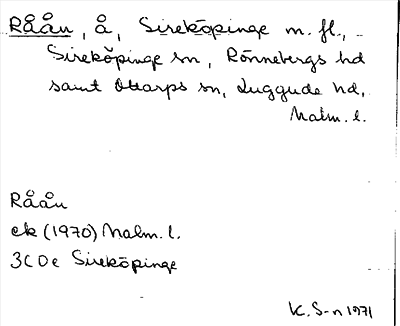 Råån, å, Sireköpinge m. fl.,
Sireköpinge sn, Rönnebergs hd
samt Ottarps sn, Luggude hd,
Malm. l.
Råån
ek (1970) Malm. l.
3C0e Sireköpinge
K. S-n 1971